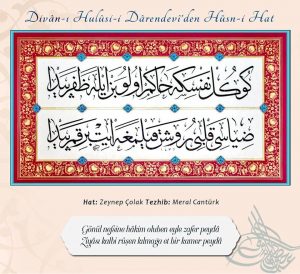 Dîvân-ı Hulûsi-i Dârendevî'den Hüsn-i Hat
كوكل نفسكه حاكم اولوبن ايله ظفر پيدا
ضياسى قلبى روشن قيلمغه ايت بر قمر پيدا
Hat: Zeynep Çolak Tezhib: Meral Cantürk
Gönül nefsine hâkim oluben eyle zafer peydâ
Ziyâsı kalbi rûşen kılmağa et bir kamer peydâ